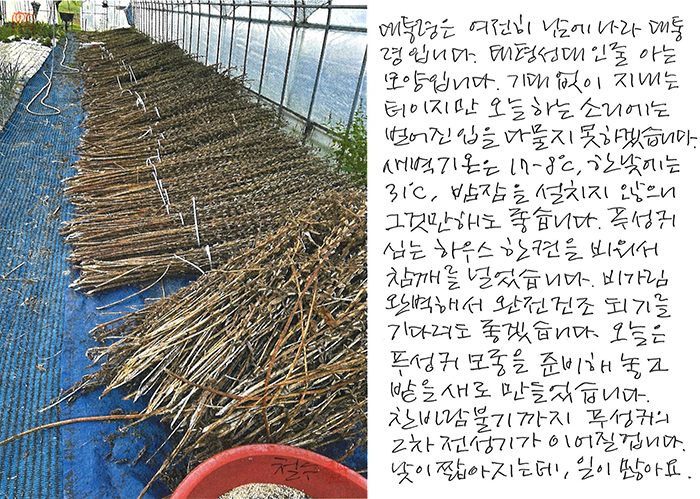 대통령은 여전히 남에 나라 대통
령입니다. 태평성대인줄 아는
모양입니다. 기대없이 지내는
터이지만 오늘하는 소리에는
벌어진 입을 다물지 못하겠습니다.
새벽기온은 17-8℃, 한낮에는
31℃, 밤잠을 설치지 않으니
그것만해도 좋습니다. 푸성귀
심는 하우스 한켠을 비워서
참깨를 널었습니다. 비가림
완벽해서 완전건조 되기를
기다려도 좋겠습니다. 오늘은
푸성귀 모종을 준비해 놓고
밭을 새로 만들었습니다.
찬바람불기까지 푸성귀의
2차 전성기가 이어질겁니다.
낮이 짧아지는데, 일이 많아요.
철수